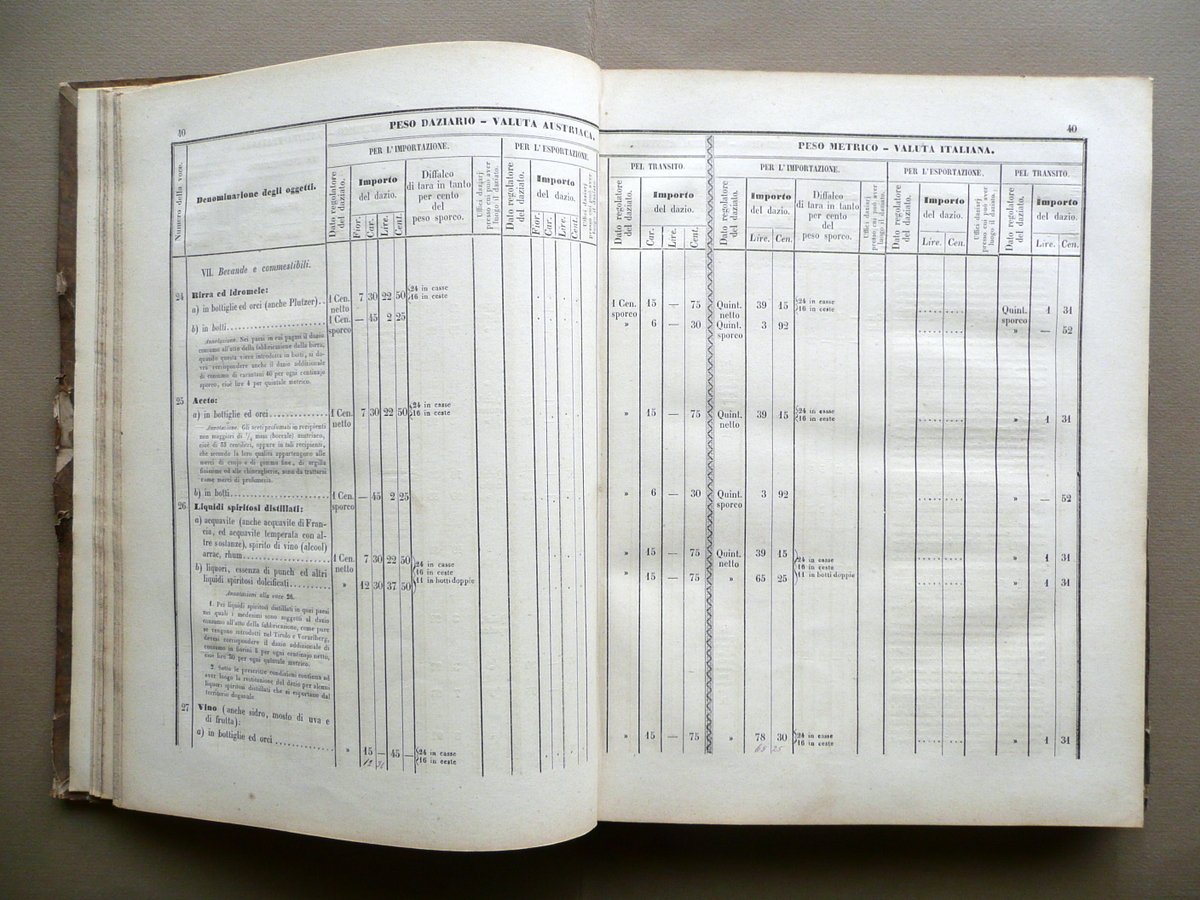 40
PESO DAZIARIO – VALUTA AUSTRIACA.
Numero della voce.
Denominazione degli oggetti.
PER L'IMPORTAZIONE.
PER L'ESPORTAZIONE.
Dato regolatore del daziato.
Importo del dazio.
Fior. Car. Lire. Cent.
Diffalco di tara in tanto per cento del peso sporco.
Uffici daziarj presso cui può aver luogo il daziato.
Dato regolatore del daziato.
Importo del dazio.
Fior. Car. Lire. Cent.
VII. Bevande e commestibili.
24 Birra ed idromele:
a) in bottiglie ed orci (anche Plutzer).. 1 Cen. netto 7 30 22 50 24 in casse 16 in ceste
b) in botti 1 Cen. sporco — 45 2 25
Annotazione. Nei paesi in cui pagasi il dazio
consumo all'atto della fabbricazione della birra,
quando questa viene introdotta in botti, si do-
vrà corrispondere anche il dazio addizionale
di consumo di carantani 40 per ogni centinajo
sporco, cioè lire 4 per quintale metrico.
25 Aceto:
a) in bottiglie ed orci 1 Cen. netto 7 30 22 50 24 in casse 16 in ceste
Annotazione. Gli aceti profumati in recipienti
non maggiori di 1/4 mass (boccale) austriaco,
cioè di 35 centilitri, oppure in tali recipienti,
che secondo la loro qualità appartengono alle
merci di cuojo e di gomma fine, di argilla
finissime ed alle chincaglierie, sono da trattarsi
come merci di profumeria.
b) in botti 1 Cen. sporco — 45 2 25
26 Liquidi spiritosi distillati:
a) acquavite (anche acquavite di Fran-
cia, ed acquavite temperata con al-
tre sostanze), spirito di vino (alcool)
arrac, rhum 1 Cen. netto 7 30 22 50
b) liquori, essenza di punch ed altri
liquidi spiritosi dolcificati » 12 30 37 50
24 in casse
16 in ceste
11 in botti doppie
Annotazioni alla voce 26.
1. Pei liquidi spiritosi distillati in quei paesi
nei quali i medesimi sono soggetti al dazio
consumo all'atto della fabbricazione, come pure
se vengono introdotti nel Tirolo e Vorarlberg,
devesi corrispondere il dazio addizionale di
consumo in fiorini 5 per ogni centinajo netto,
cioè lire 30 per ogni quintale metrico.
2. Sotto le prescritte condizioni continua ad
aver luogo la restituzione del dazio per alcuni
liquori spiritosi distillati che si esportano dal
territorio doganale.
27 Vino (anche sidro, mosto di uva e
di frutta):
a) in bottiglie ed orci » 15 — 45 — 24 in casse 16 in ceste
40
PESO METRICO – VALUTA ITALIANA.
PEL TRANSITO.
PER L'IMPORTAZIONE.
PER L'ESPORTAZIONE.
PEL TRANSITO.
Dato regolatore del daziato.
Importo del dazio.
Car. Lire. Cent.
Dato regolatore del daziato.
Importo del dazio.
Lire. Cen.
Diffalco di tara in tanto per cento del peso sporco.
Uffici daziarj presso cui può aver luogo il daziato.
Dato regolatore del daziato.
Importo del dazio.
Lire. Cen.
Uffici daziarj presso cui può aver luogo il daziato.
Dato regolatore del daziato.
Importo del dazio.
Lire. Cen.
1 Cen. sporco 15 — 75 Quint. netto 39 15 24 in casse 16 in ceste Quint. sporco 1 31
» 6 — 30 Quint. sporco 3 92 » — 52
» 15 — 75 Quint. netto 39 15 24 in casse 16 in ceste » 1 31
» 6 — 30 Quint. sporco 3 92 » — 52
» 15 — 75 Quint. netto 39 15 » 1 31
24 in casse
16 in ceste
11 in botti doppie
» 15 — 75 » 65 25 » 1 31
» 15 — 75 » 78 30 24 in casse 16 in ceste » 1 31